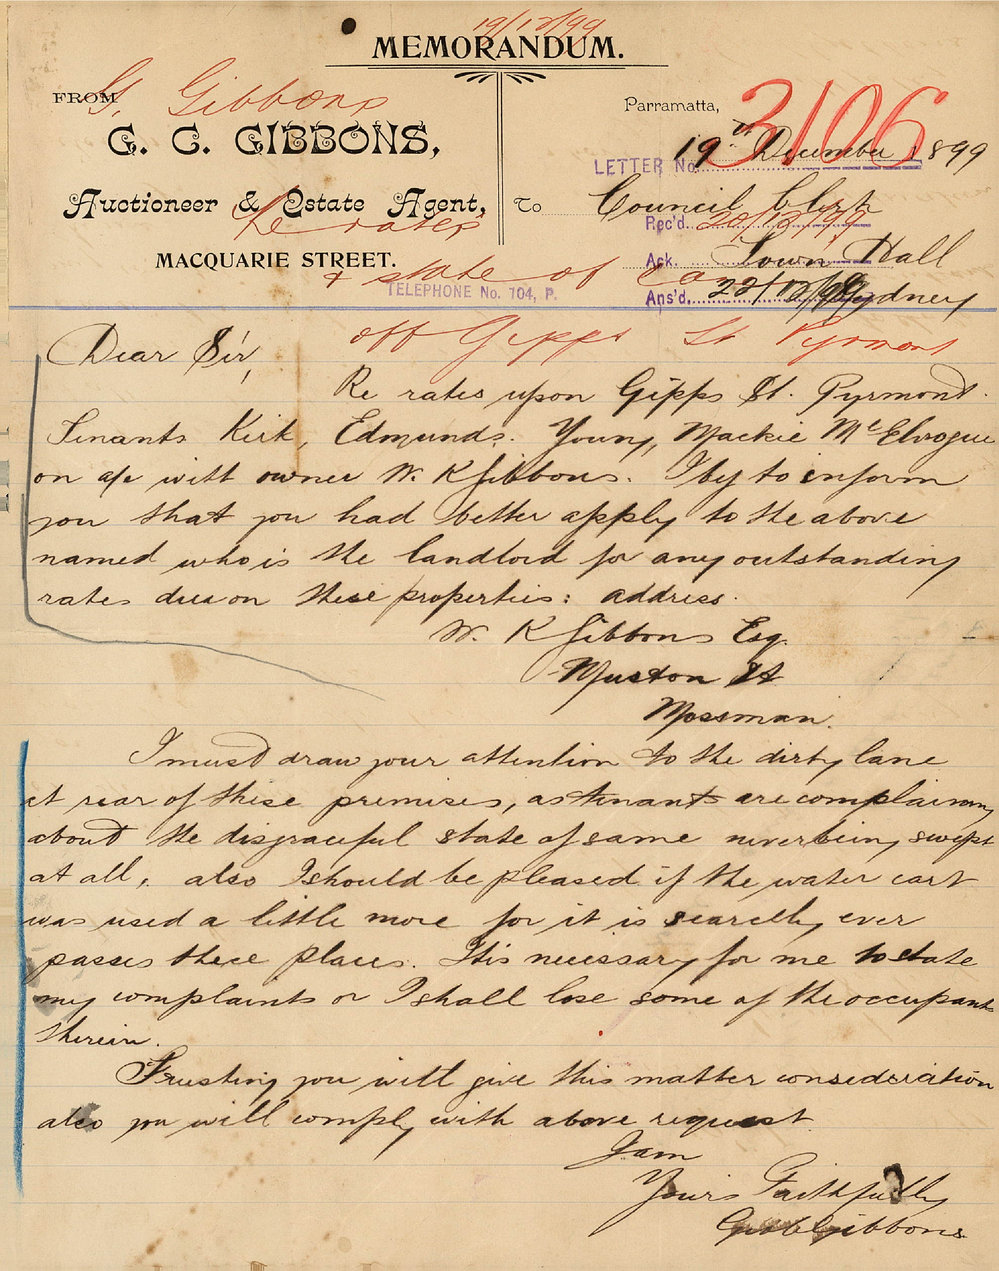 19/12/99
MEMORANDUM.
FROM
G. Gibbons
G. C. GIBBONS,
Auctioneer & Estate Agent,
Re rates
MACQUARIE STREET.
& state of Lane
TELEPHONE No. 104, P.
off Gipps St Pyrmont
Parramatta,
3106
19th December 1899
LETTER No.
To Council Clerk
Rec'd. 20/12/99
Town Hall
Ack.
Sydney
Ans'd. 22/12/99
Dear Sir,
Re rates upon Gipps St. Pyrmont.
Tenants Kirk, Edmunds. Young, Mackie McElrogue
on a/c with owner W. K Gibbons. I beg to inform
you that you had better apply to the above
named who is the landlord for any outstanding
rates due on these properties: address.
W. K Gibbons Esq.
Muston St
Mossman.
I must draw your attention to the dirty lane
at rear of these premises, as tenants are complaining
about the disgraceful state of same never being swept
at all, also I should be pleased if the water cart
was used a little more for it is scarcely ever
passes these places. It is necessary for me to state
my complaints or I shall lose some of the occupants
therein.
Trusting you will give this matter consideration
also you will comply with above request
I am
Yours Faithfully
Gibbons